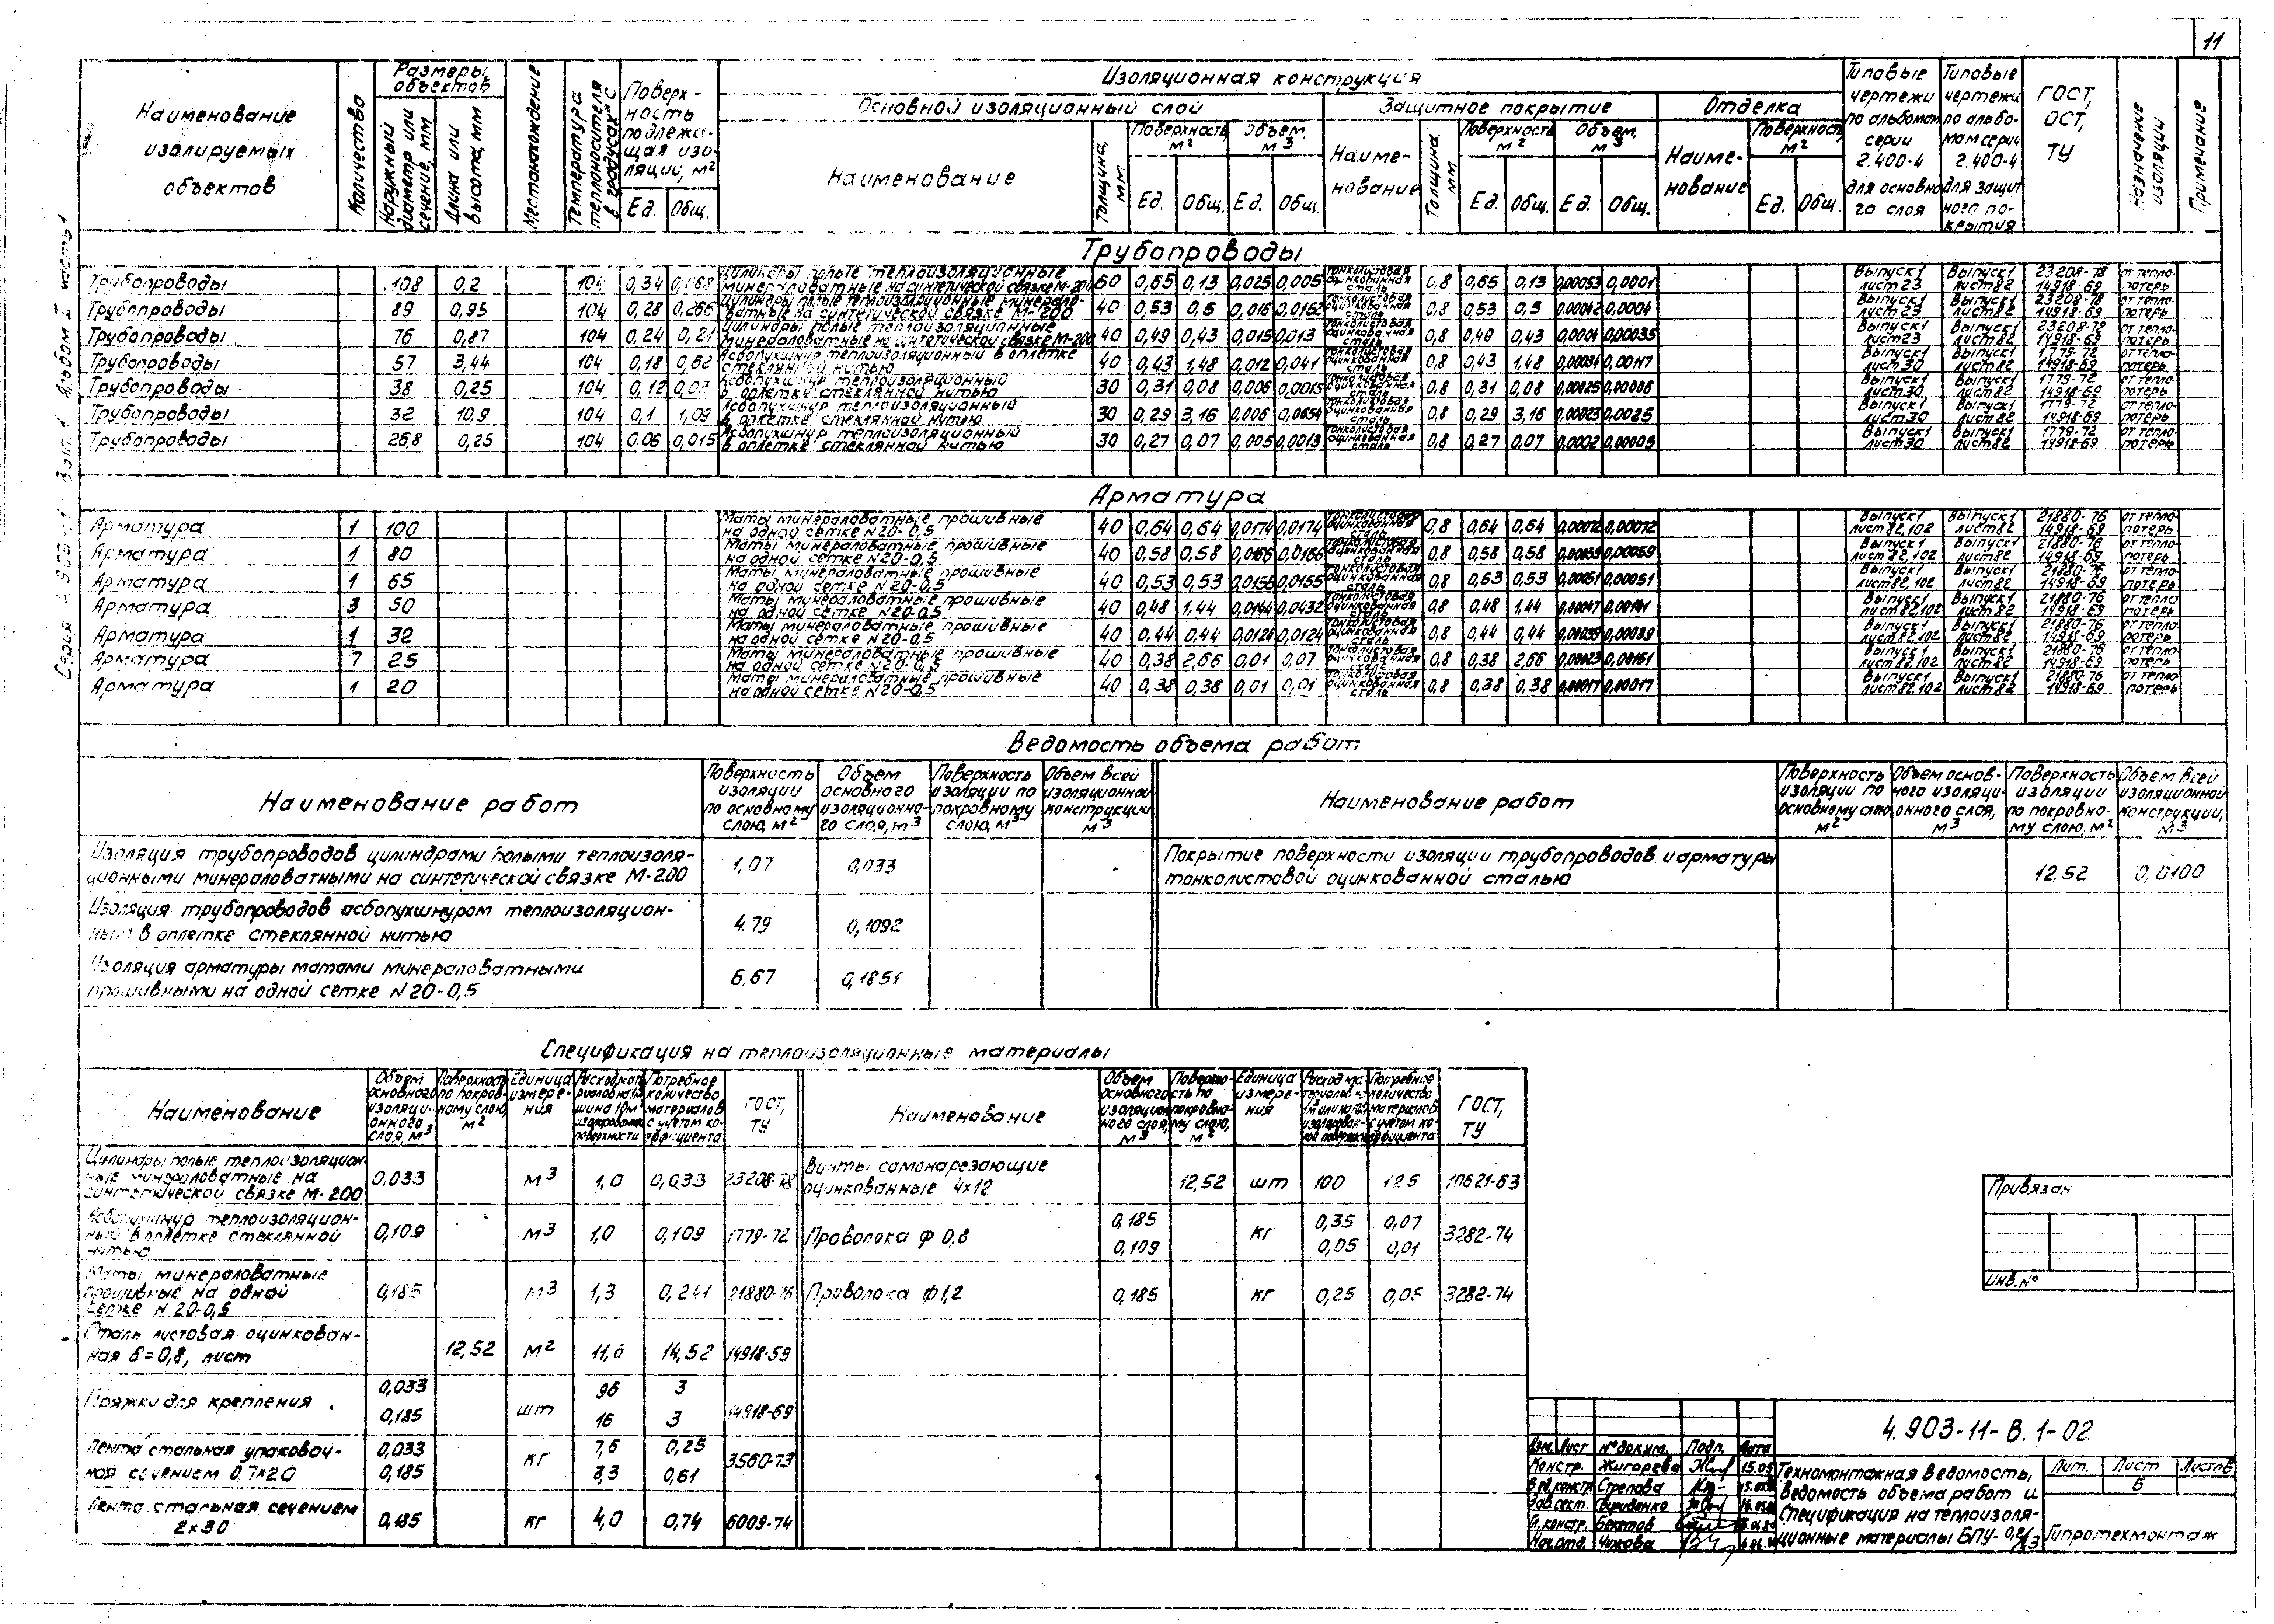 11
Наименование изолируемых объектов
Количество
Размеры объектов
Наружный диаметр или сечение, мм
Длина или высота, мм
Местонахождение
Температура теплоносителя в градусах °С
Поверхность подлежащая изоляции, м²
Ед. Общ.
Изоляционная конструкция
Основной изоляционный слой
Наименование
Толщина, мм
Поверхность м²
Ед. Общ.
Объем, м³
Ед. Общ.
Защитное покрытие
Наименование
Толщина, мм
Поверхность м²
Ед. Общ.
Объем, м³
Ед. Общ.
Отделка
Наименование
Поверхность м²
Ед. Общ.
Типовые чертежи по альбомам серии 2.400-4 для основного слоя
Типовые чертежи по альбомам серии 2.400-4 для защитного покрытия
ГОСТ, ОСТ, ТУ
Назначение изоляции
Примечание
Трубопроводы
Трубопроводы 108 0,2 104 0,34 0,068 Цилиндры полые теплоизоляционные минераловатные на синтетической связке М-200 60 0,65 0,13 0,025 0,005 тонколистовая оцинкованная сталь 0,8 0,65 0,13 0,00053 0,0001 Выпуск 1 лист 23 Выпуск 1 лист 82 23208-78 14918-69 от теплопотерь
Трубопроводы 89 0,95 104 0,28 0,266 Цилиндры полые теплоизоляционные минераловатные на синтетической связке М-200 40 0,53 0,5 0,016 0,0152 тонколистовая оцинкованная сталь 0,8 0,53 0,5 0,00042 0,0004 Выпуск 1 лист 23 Выпуск 1 лист 82 23208-78 14918-69 от теплопотерь
Трубопроводы 76 0,87 104 0,24 0,21 Цилиндры полые теплоизоляционные минераловатные на синтетической связке М-200 40 0,49 0,43 0,015 0,013 тонколистовая оцинкованная сталь 0,8 0,49 0,43 0,0004 0,00035 Выпуск 1 лист 23 Выпуск 1 лист 82 23208-78 14918-69 от теплопотерь
Трубопроводы 57 3,44 104 0,18 0,62 Асбопухшнур теплоизоляционный в оплетке стеклянной нитью 40 0,43 1,48 0,012 0,041 тонколистовая оцинкованная сталь 0,8 0,43 1,48 0,00034 0,00117 Выпуск 1 лист 30 Выпуск 1 лист 82 1779-72 14918-69 от теплопотерь
Трубопроводы 38 0,25 104 0,12 0,03 Асбопухшнур теплоизоляционный в оплетке стеклянной нитью 30 0,31 0,08 0,006 0,0015 тонколистовая оцинкованная сталь 0,8 0,31 0,08 0,00025 0,00006 Выпуск 1 лист 30 Выпуск 1 лист 82 1779-72 14918-69 от теплопотерь
Трубопроводы 32 10,9 104 0,1 1,09 Асбопухшнур теплоизоляционный в оплетке стеклянной нитью 30 0,29 3,16 0,006 0,0654 тонколистовая оцинкованная сталь 0,8 0,29 3,16 0,00023 0,0025 Выпуск 1 лист 30 Выпуск 1 лист 82 1779-72 14918-69 от теплопотерь
Трубопроводы 26,8 0,25 104 0,06 0,015 Асбопухшнур теплоизоляционный в оплетке стеклянной нитью 30 0,27 0,07 0,005 0,0013 тонколистовая оцинкованная сталь 0,8 0,27 0,07 0,0002 0,00005 Выпуск 1 лист 30 Выпуск 1 лист 82 1779-72 14918-69 от теплопотерь
Арматура
Арматура 1 100 Маты минераловатные прошивные на одной сетке N20-0,5 40 0,64 0,64 0,0174 0,0174 тонколистовая оцинкованная сталь 0,8 0,64 0,64 0,00072 0,00072 Выпуск 1 лист 82,102 Выпуск 1 лист 82 21880-76 14918-69 от теплопотерь
Арматура 1 80 Маты минераловатные прошивные на одной сетке N20-0,5 40 0,58 0,58 0,0166 0,0166 тонколистовая оцинкованная сталь 0,8 0,58 0,58 0,00059 0,00059 Выпуск 1 лист 82,102 Выпуск 1 лист 82 21880-76 14918-69 от теплопотерь
Арматура 1 65 Маты минераловатные прошивные на одной сетке N20-0,5 40 0,53 0,53 0,0155 0,0155 тонколистовая оцинкованная сталь 0,8 0,53 0,53 0,00051 0,00051 Выпуск 1 лист 82,102 Выпуск 1 лист 82 21880-76 14918-69 от теплопотерь
Арматура 3 50 Маты минераловатные прошивные на одной сетке N20-0,5 40 0,48 1,44 0,0144 0,0432 тонколистовая оцинкованная сталь 0,8 0,48 1,44 0,00047 0,00141 Выпуск 1 лист 82,102 Выпуск 1 лист 82 21880-76 14918-69 от теплопотерь
Арматура 1 32 Маты минераловатные прошивные на одной сетке N20-0,5 40 0,44 0,44 0,0124 0,0124 тонколистовая оцинкованная сталь 0,8 0,44 0,44 0,00039 0,00039 Выпуск 1 лист 82,102 Выпуск 1 лист 82 21880-76 14918-69 от теплопотерь
Арматура 7 25 Маты минераловатные прошивные на одной сетке N20-0,5 40 0,38 2,66 0,01 0,07 тонколистовая оцинкованная сталь 0,8 0,38 2,66 0,00023 0,00161 Выпуск 1 лист 82,102 Выпуск 1 лист 82 21880-76 14918-69 от теплопотерь
Арматура 1 20 Маты минераловатные прошивные на одной сетке N20-0,5 40 0,38 0,38 0,01 0,01 тонколистовая оцинкованная сталь 0,8 0,38 0,38 0,00017 0,00017 Выпуск 1 лист 82,102 Выпуск 1 лист 82 21880-76 14918-69 от теплопотерь
Ведомость объема работ
Наименование работ
Поверхность изоляции по основному слою, м²
Объем основного изоляционного слоя, м³
Поверхность изоляции по покровному слою, м³
Объем всей изоляционной конструкции м³
Наименование работ
Поверхность изоляции по основному слою м²
Объем основного изоляционного слоя, м³
Поверхность изоляции по покровному слою, м²
Объем всей изоляционной конструкции, м³
Изоляция трубопроводов цилиндрами полыми теплоизоля-
ционными минераловатными на синтетической связке М-200 1,07 0,033
Покрытие поверхности изоляции трубопроводов и арматуры
тонколистовой оцинкованной сталью 12,52 0,0100
Изоляция трубопроводов асбопухшнуром теплоизоляцион-
ным в оплетке стеклянной нитью 4.79 0,1092
Изоляция арматуры матами минераловатными
прошивными на одной сетке N20-0,5 6.67 0,1851
Спецификация на теплоизоляционные материалы
Наименование
Объем основного изоляционного слоя, м³
Поверхность по покровному слою, м²
Единица измерения
Потребное количество материалов с учетом коэффициента
ГОСТ, ТУ
Наименование
Объем основного изоляционного слоя, м³
Поверхность по покровному слою, м²
Единица измерения
Потребное количество материалов с учетом коэффициента
ГОСТ, ТУ
Цилиндры полые теплоизоляционные минераловатные на синтетической связке М-200 0,033 м³ 1,0 0,033 23208-78
Винты самонарезающие оцинкованные 4х12 12,52 шт 100 125 10621-63
Асбопухшнур теплоизоляционный в оплетке стеклянной нитью 0,109 м³ 1,0 0,109 1779-72
Проволока ф 0,8 0,185 0,109 кг 0,35 0,05 0,07 0,01 3282-74
Маты минераловатные прошивные на одной сетке N 20-0,5 0,185 м³ 1,3 0,241 21880-76
Проволока ф1,2 0,185 кг 0,25 0,05 3282-74
Сталь листовая оцинкованная δ=0,8, лист 12,52 м² 11,6 14,52 14918-59
Пряжки для крепления 0,033 0,185 шт 96 16 3 3 14918-69
Лента стальная упаковочная сечением 0,7х20 0,033 0,185 кг 7,6 3,3 0,25 0,61 3560-73
Лента стальная сечением 2х30 0,185 кг 4,0 0,74 6009-74
Привязан
Инв. №
4.903-11-В.1-02
Изм. Лист № докум. Подп. Дата
Констр. Жигарева 15.05
Вед.констр Стрелова
Зав.сект. Свириденко
Гл.констр. Бекетов
Нач.отд. Чижова
Техномонтажная ведомость,
ведомость объема работ и
спецификация на теплоизоля-
ционные материалы БПУ-
Лит. Лист Листов
6
Гипротехмонтаж
Альбом I часть 1